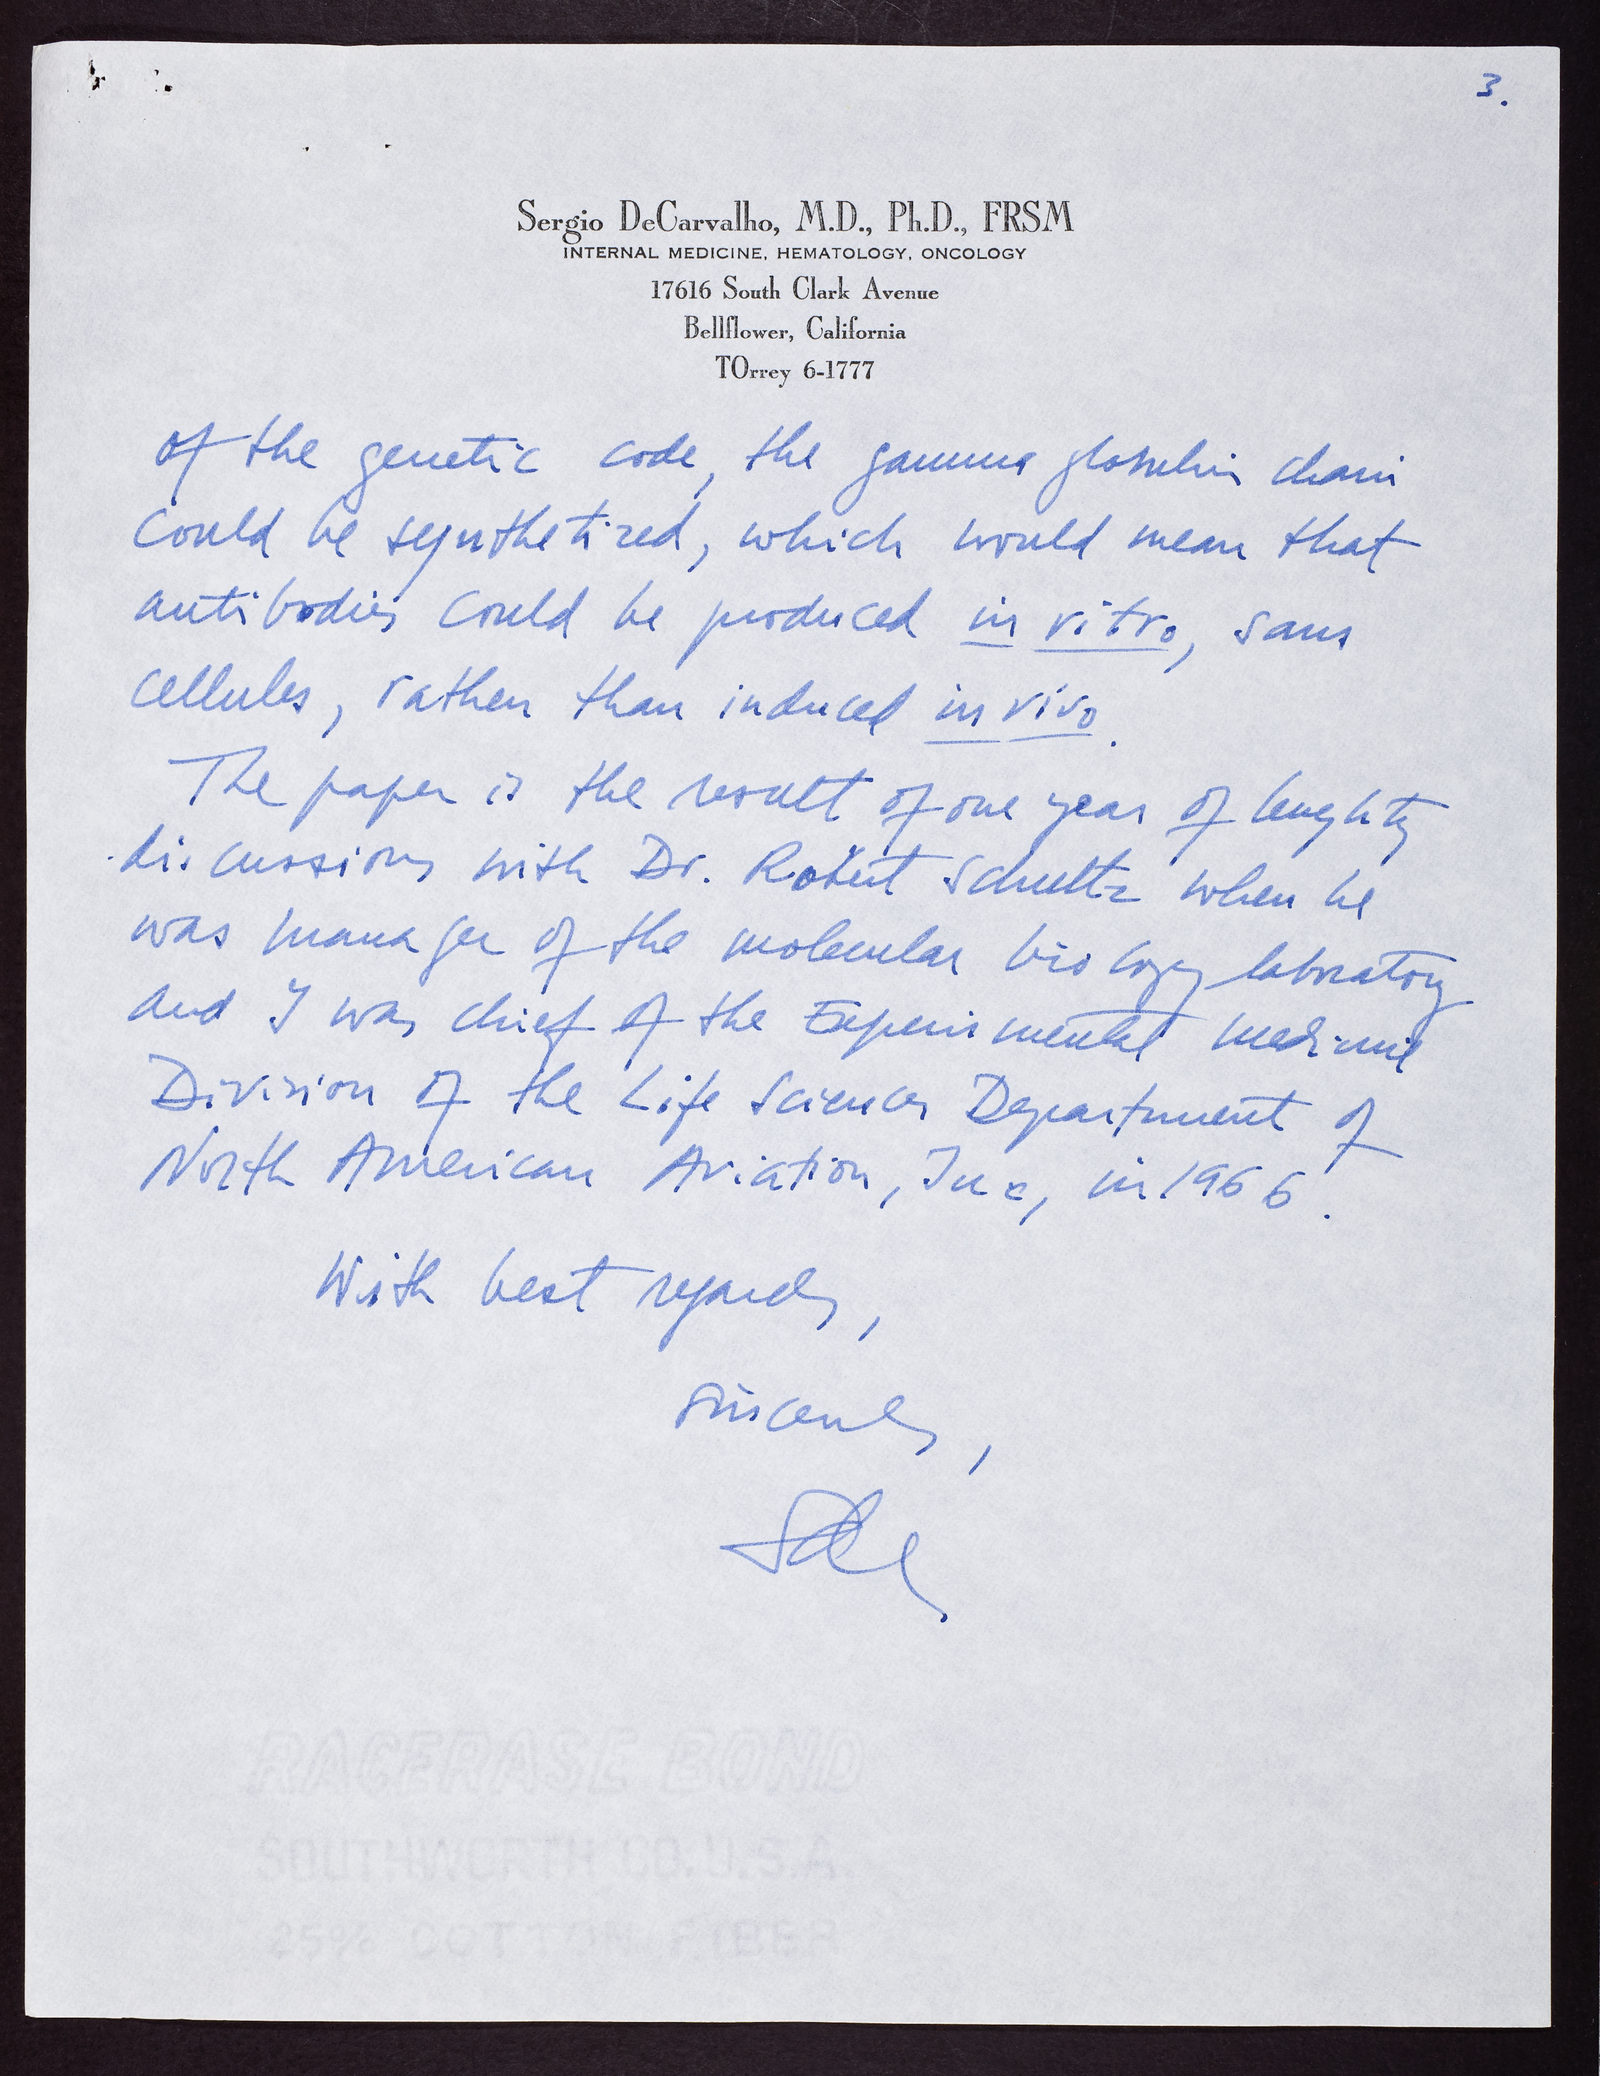 3.
Sergio DeCarvalho, M.D., Ph.D., FRSM
INTERNAL MEDICINE, HEMATOLOGY, ONCOLOGY
17616 South Clark Avenue
Bellflower, California
TOrrey 6-1777
of the genetic code, the gamma globulin chain
could be synthetized, which would mean that
antibodies could be produced in vitro, sans
cellules, rather than induced in vivo.
The paper is the result of one year of lenghty
discussions with Dr. Robert Schultz when he
was manager of the molecular biology laboratory
and I was chief of the Experimental medicine
Division of the Life Sciences Department of
North American Aviation, Inc, in 1966.
With best regards,
Sincerely,
SDC
RACERASE BOND
SOUTHWORTH CO. U.S.A.
25% COTTON FIBER